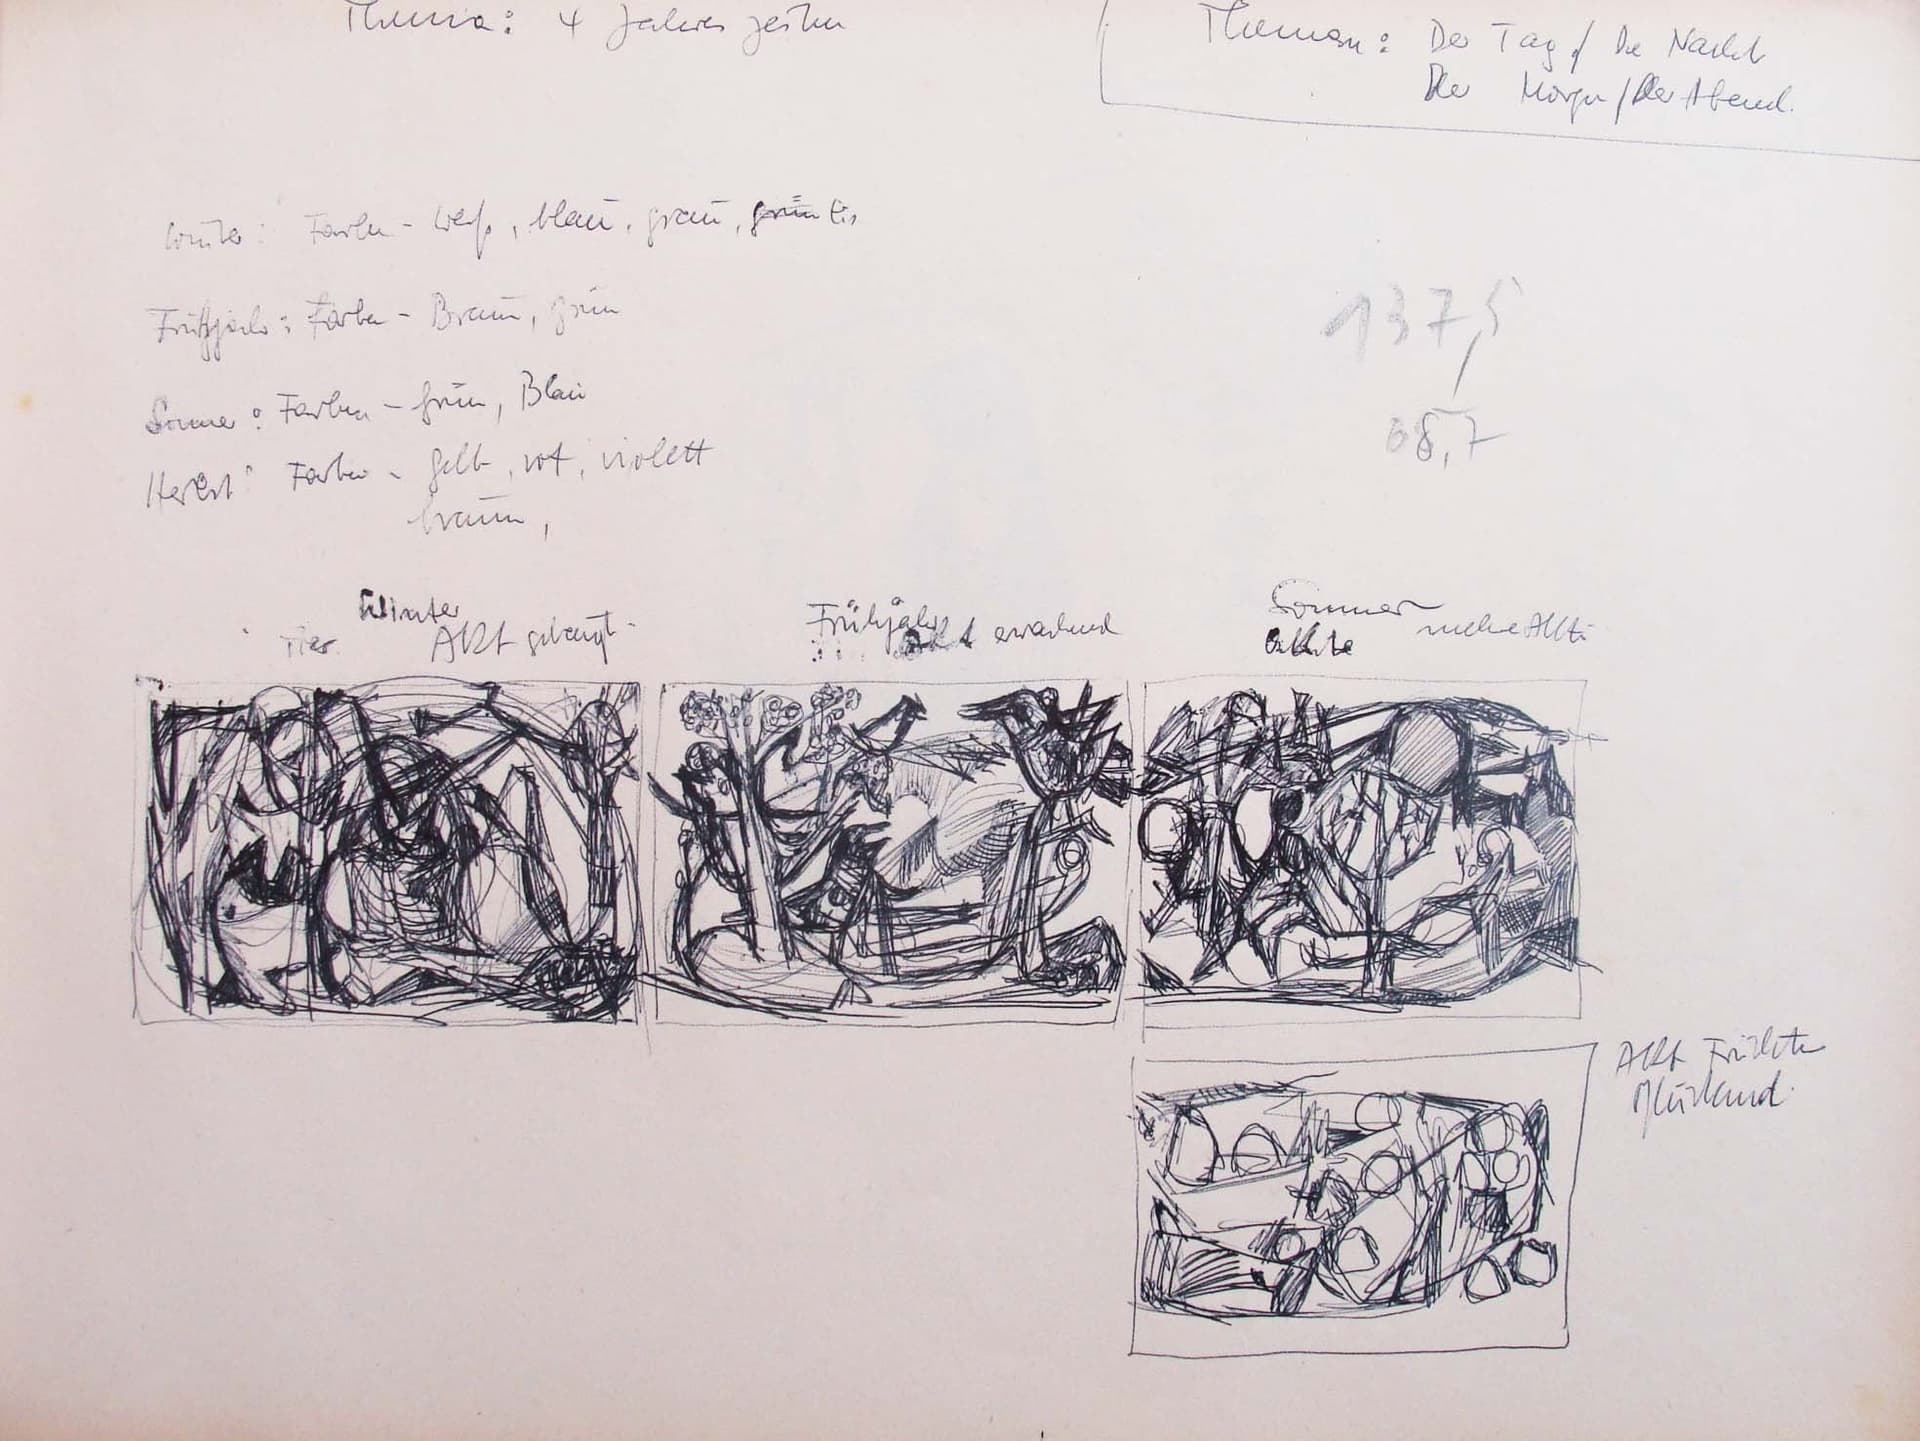 Thema: 4 Jahreszeiten
Themen: Der Tag / Die Nacht
Der Morgen / Der Abend.
Winter: Farben - weiß, blau, grau, grün Eis
Frühjahr: Farben - Braun, grün
Sommer: Farben - grün, Blau
Herbst: Farben - gelb, rot, violett
braun,
137,5
68,7
Winter
Tier Akt gebeugt
Frühjahr
Akt erwachend
Sommer
Akte mehre Akte
Akt Früchte
pflückend.